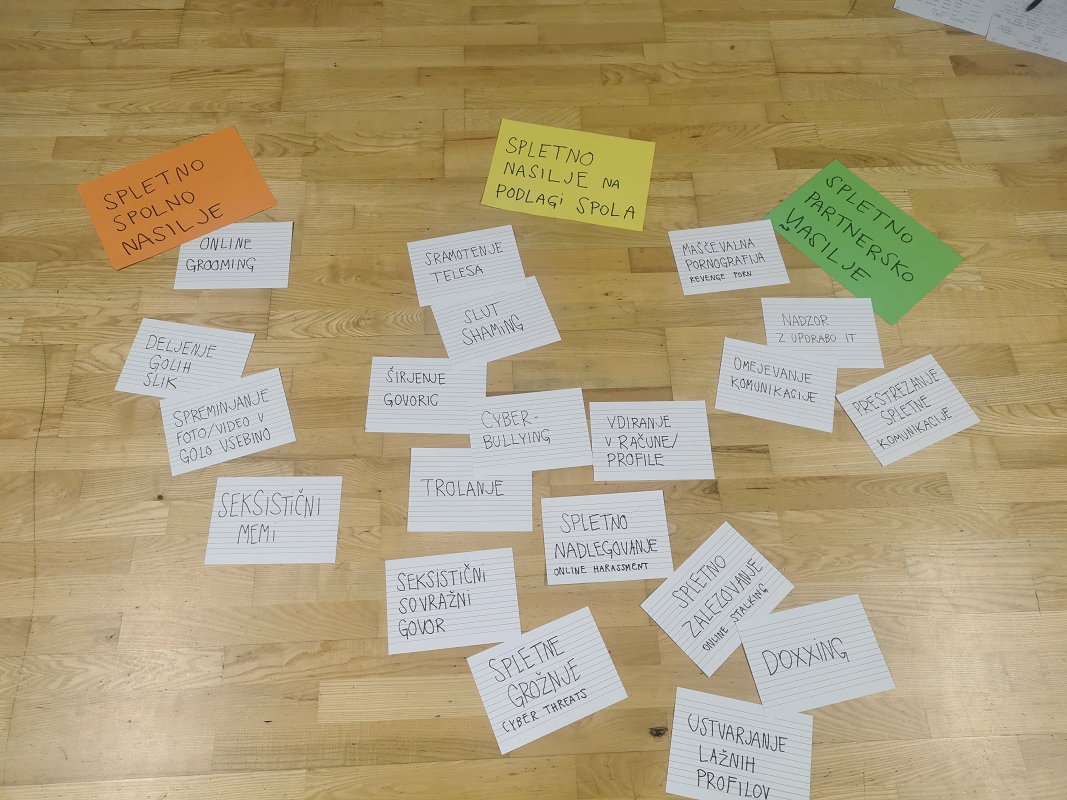 SPLETNO
SPOLNO
NASILJE
ONLINE
GROOMING
DELJENJE
GOLIH
SLIK
SPREMINJANJE
FOTO/VIDEO V
GOLO VSEBINO
SEKSISTIČNI
MEMI
SPLETNO
NASILJE NA
PODLAGI SPOLA
SRAMOTENJE
TELESA
SLUT
SHAMING
ŠIRJENJE
GOVORIC
CYBER-
BULLYING
VDIRANJE
V RAČUNE/
PROFILE
TROLANJE
SPLETNO
NADLEGOVANJE
ONLINE HARASSMENT
SEKSISTIČNI
SOVRAŽNI
GOVOR
SPLETNE
GROŽNJE
CYBER THREATS
SPLETNO
PARTNERSKO
NASILJE
MAŠČEVALNA
PORNOGRAFIJA
REVENGE PORN
NADZOR
Z UPORABO IT
OMEJEVANJE
KOMUNIKACIJE
PRESTREZANJE
SPLETNE
KOMUNIKACIJE
SPLETNO
ZALEZOVANJE
ONLINE STALKING
DOXXING
USTVARJANJE
LAŽNIH
PROFILOV